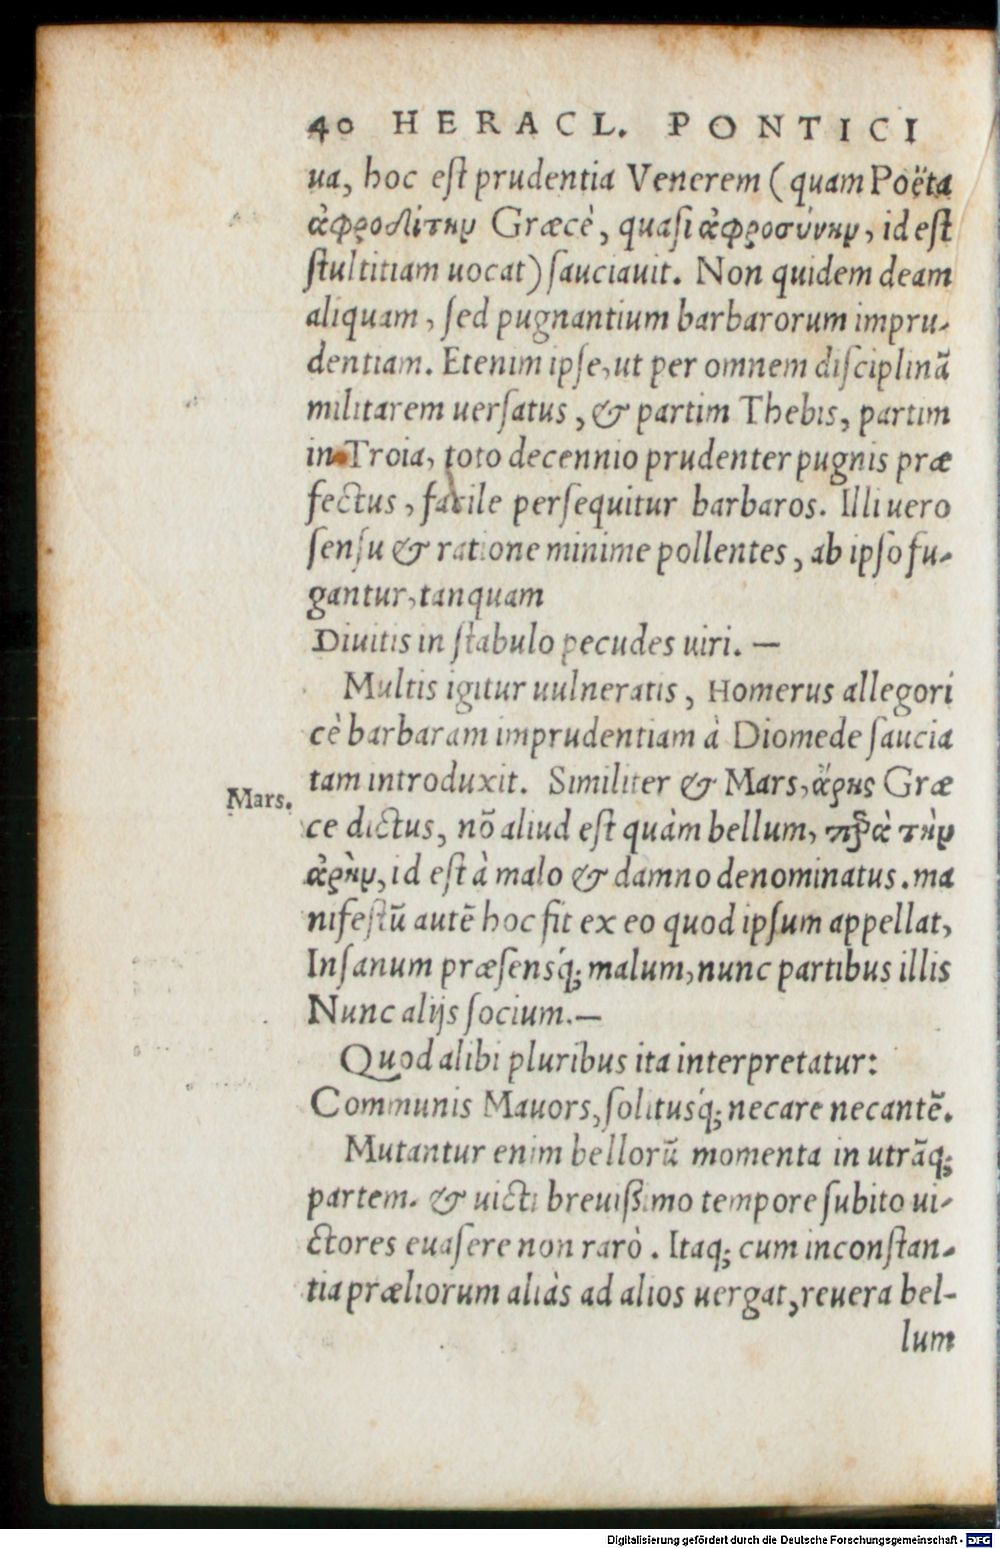 40 HERACL. PONTICI
ua, hoc est prudentia Venerem (quam Poëta
ἀφροδίτην Græcè, quasi ἀφροσύνην, id est
stultitiam uocat) sauciauit. Non quidem deam
aliquam, sed pugnantium barbarorum impru-
dentiam. Etenim ipse, ut per omnem disciplinã
militarem uersatus, & partim Thebis, partim
in Troia, toto decennio prudenter pugnis præ
fectus, facile persequitur barbaros. Illi uero
sensu & ratione minime pollentes, ab ipso fu-
gantur, tanquam
Diuitis in stabulo pecudes uiri. —
Multis igitur uulneratis, Homerus allegori
cè barbaram imprudentiam à Diomede saucia
tam introduxit. Similiter & Mars, ἄρης Græ
Mars.
ce dictus, nõ aliud est quàm bellum, παρὰ τὴν
ἀρὴν, id est à malo & damno denominatus. ma
nifestũ autẽ hoc fit ex eo quod ipsum appellat,
Insanum præsensq́; malum, nunc partibus illis
Nunc alijs socium.—
Quod alibi pluribus ita interpretatur:
Communis Mauors, solitusq́; necare necantẽ.
Mutantur enim bellorũ momenta in utrãq;
partem. & uicti breuißimo tempore subito ui-
ctores euasere non rarò. Itaq; cum inconstan-
tia præliorum aliàs ad alios uergat, reuera bel-
lum
Digitalisierung gefördert durch die Deutsche Forschungsgemeinschaft - DFG